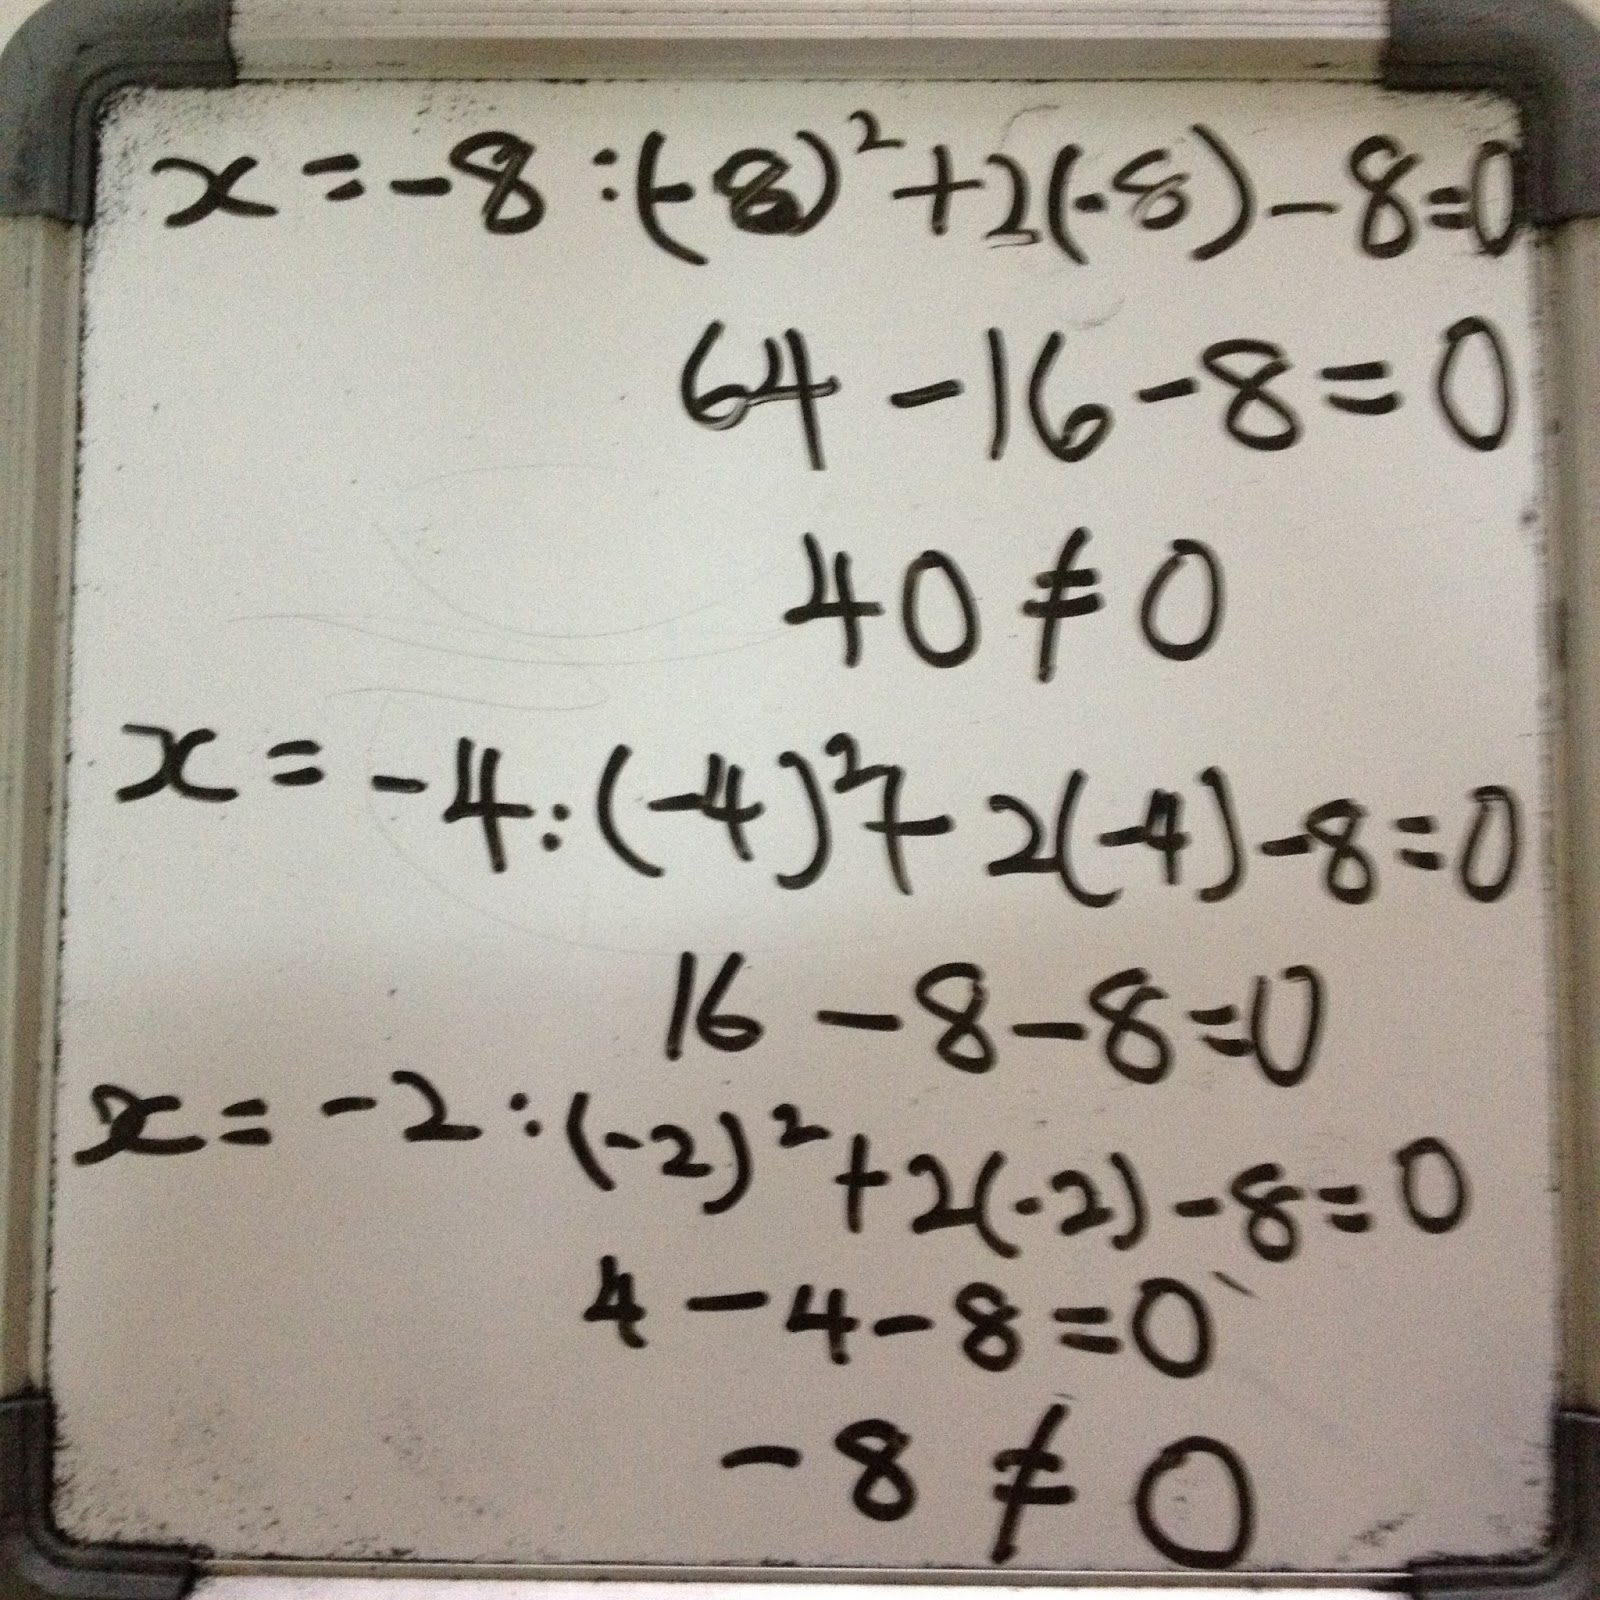 x = -8 : (-8)² + 2(-8) - 8 = 0
64 - 16 - 8 = 0
40 ≠ 0
x = -4 : (-4)² + 2(-4) - 8 = 0
16 - 8 - 8 = 0
x = -2 : (-2)² + 2(-2) - 8 = 0
4 - 4 - 8 = 0
-8 ≠ 0